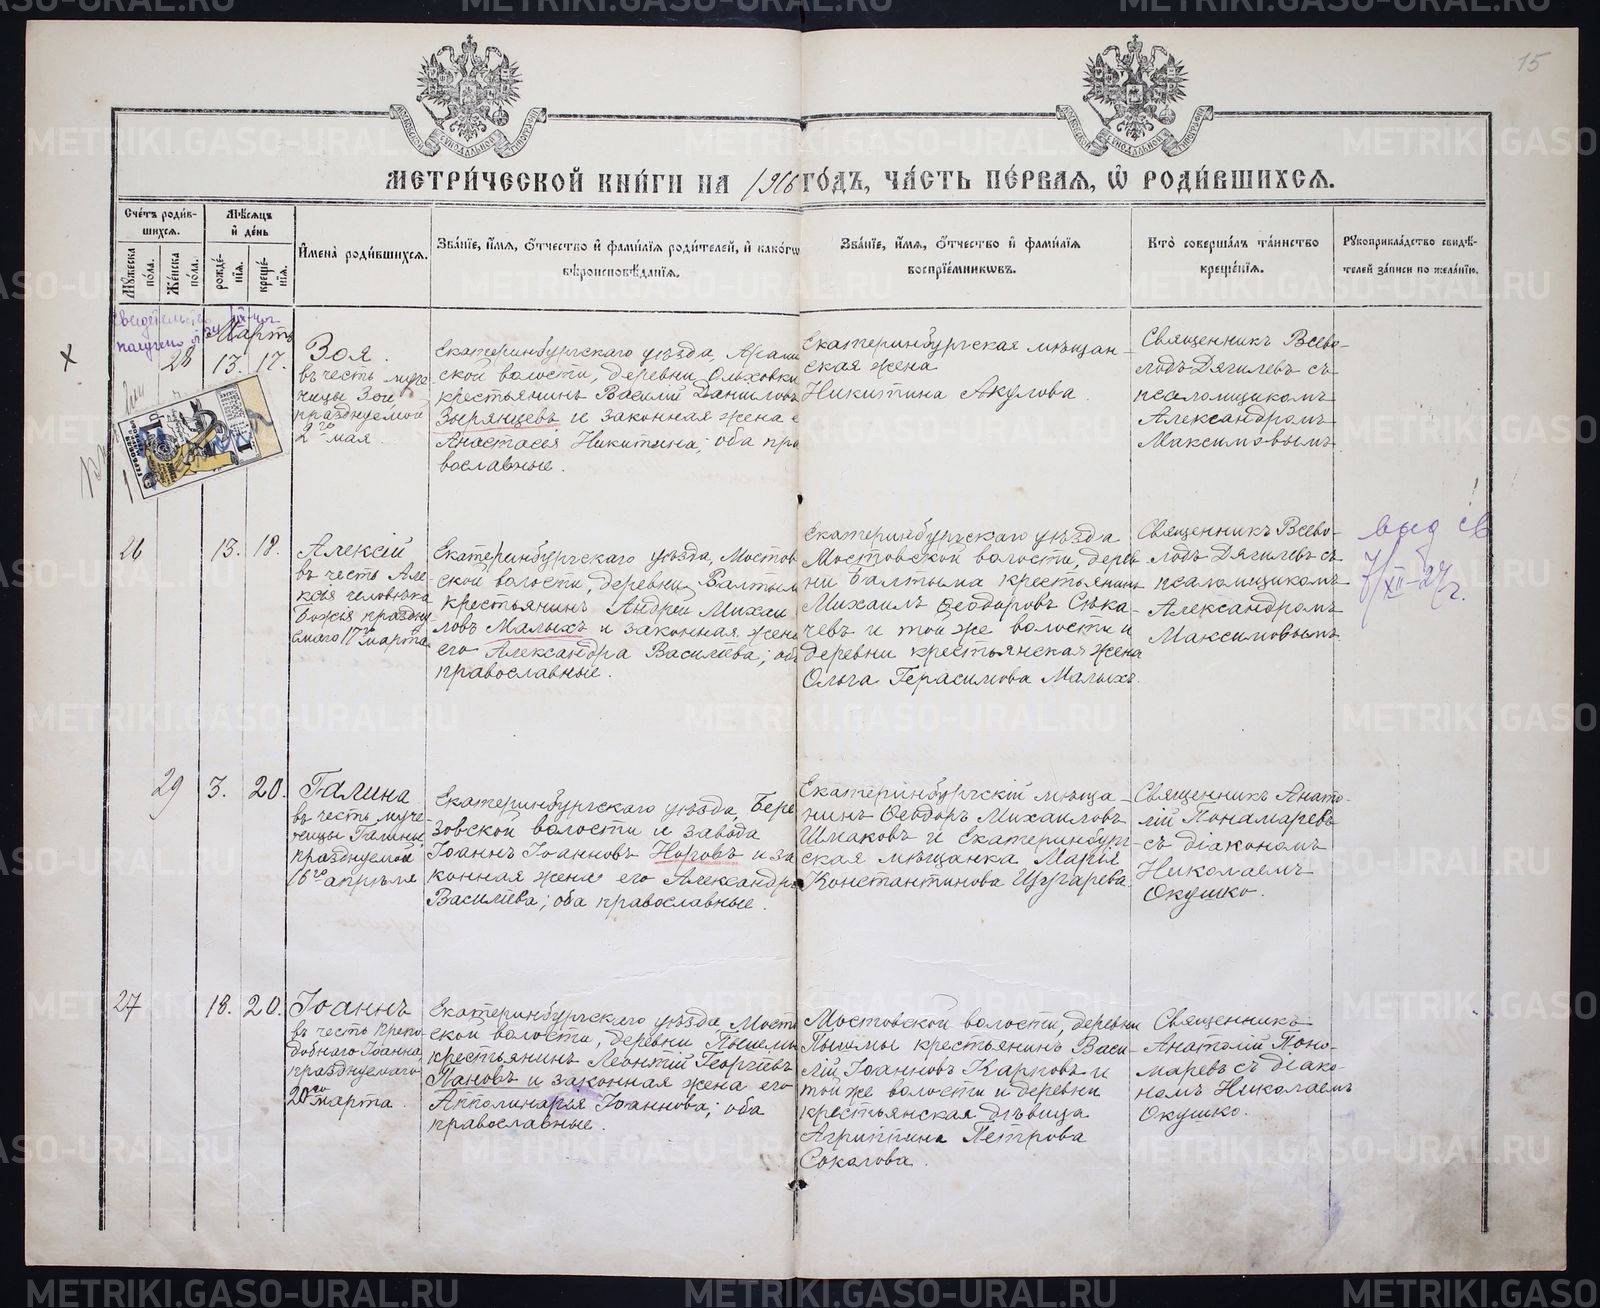 15
МЕТРИ́ЧЕСКОЙ КНИ́ГИ НА 1916 ГО́ДЪ, ЧА́СТЬ ПЕ́РВАЯ, Ѡ РОДИ́ВШИХСЯ.
Сче́тъ роди́в-
шихся.
Мꙋ́жеска по́ла.
Же́нска по́ла.
Мѣ́сяцъ
и де́нь
рожде́-
нія.
креще́-
нія.
Имена̀ роди́вшихся.
Зва́ніе, и́мя, о́тчество и фами́лія роди́телей, и како́гѡ
вѣроисповѣ́данія.
Зва́ніе, и́мя, о́тчество и фами́лія
воспріе́мникѡвъ.
Кто̀ соверша́лъ та́инство
креще́нія.
Рꙋкоприкла́дство свидѣ́-
телей за́писи по жела́нію.
Мартъ
28
13. 17.
Зоя.
въ честь муче-
ницы Зои,
празднуемой
2го мая.
Екатеринбургскаго уѣзда, Арами
ской волости, деревни Ольховки
крестьянинъ Василій Даниловъ
Зырянцевъ и законная жена е
Анастасія Никитина; оба пра
вославные.
Екатеринбургская мѣщан-
ская жена
Никитина Акулова.
Священникъ Всево-
лодъ Дягилевъ съ
псаломщикомъ
Александромъ
Максимовымъ
26
13. 18.
Алексій
въ честь Але-
ксія человѣка
Божія праздну
емаго 17го марта.
Екатеринбургскаго уѣзда, Мостов
ской волости, деревни Балтым
крестьянинъ Андрей Михаи
ловъ Малыхъ и законная жена
его Александра Васильева; оба
православные.
Екатеринбургскаго уѣзда
Мостовской волости, дерев
ни Балтыма крестьянинъ
Михаилъ Ѳеодоровъ Сѣка-
чевъ и той же волости и
деревни крестьянская жена
Ольга Герасимова Малыхъ.
Священникъ Всево-
лодъ Дягилевъ съ
псаломщикомъ
Александромъ
Максимовымъ.
выд св
7/XII-27г.
29
3. 20.
Галина
въ честь муче-
ницы Галины,
празднуемой
16го апрѣля
Екатеринбургскаго уѣзда, Бере
зовской волости и завода
Іоаннъ Іоанновъ Ногов и за
конная жена его Александра
Васильева; оба православные.
Екатеринбургскій мѣща-
нинъ Ѳеодоръ Михаиловъ
Шмаковъ и Екатеринбург-
ская мѣщанка Марія
Константинова Щугарева.
Священникъ Анато-
лій Понамаревъ
съ діакономъ
Николаемъ
Окушко.
27
18. 20.
Іоаннъ
въ честь Препо-
добнаго Іоанна,
празднуемаго
20го марта.
Екатеринбургскаго уѣзда, Мостов
ской волости, деревни Пышмы
крестьянинъ Леонтій Георгіевъ
Пановъ и законная жена его
Апполинарія Іоаннова; оба
православные.
Мостовской волости, деревни
Пышмы крестьянинъ Васи-
лій Іоанновъ Карповъ и
той же волости и деревни
крестьянская дѣвица
Агриппина Петрова
Соколова.
Священникъ
Анатолій Поно-
маревъ съ діако-
номъ Николаемъ
Окушко.